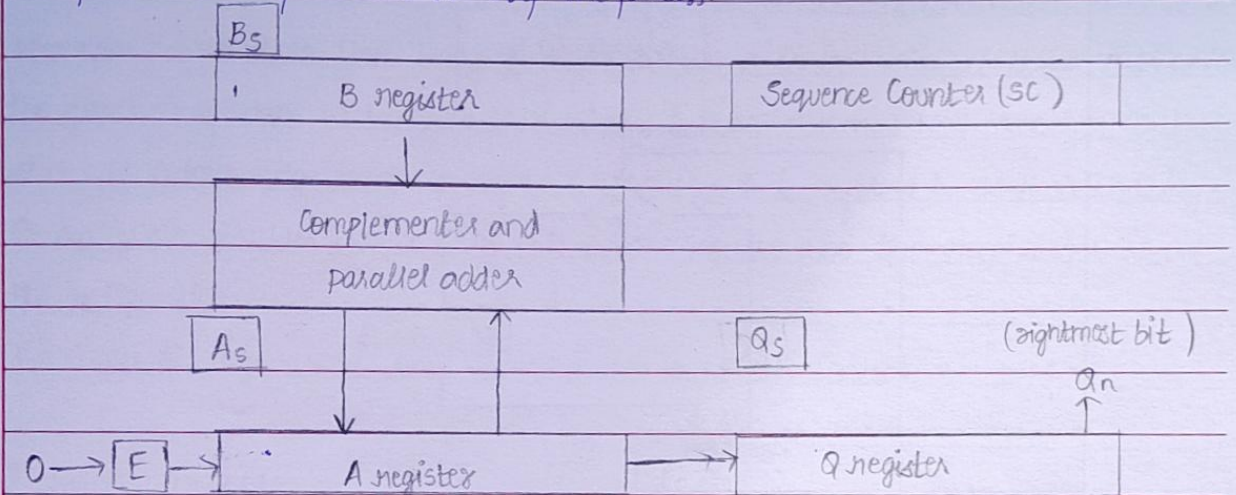 Bs
B register
Sequence Counter (SC)
Complementer and
parallel adder
As
Qs
(rightmost bit)
Qn
0
E
A register
Q register